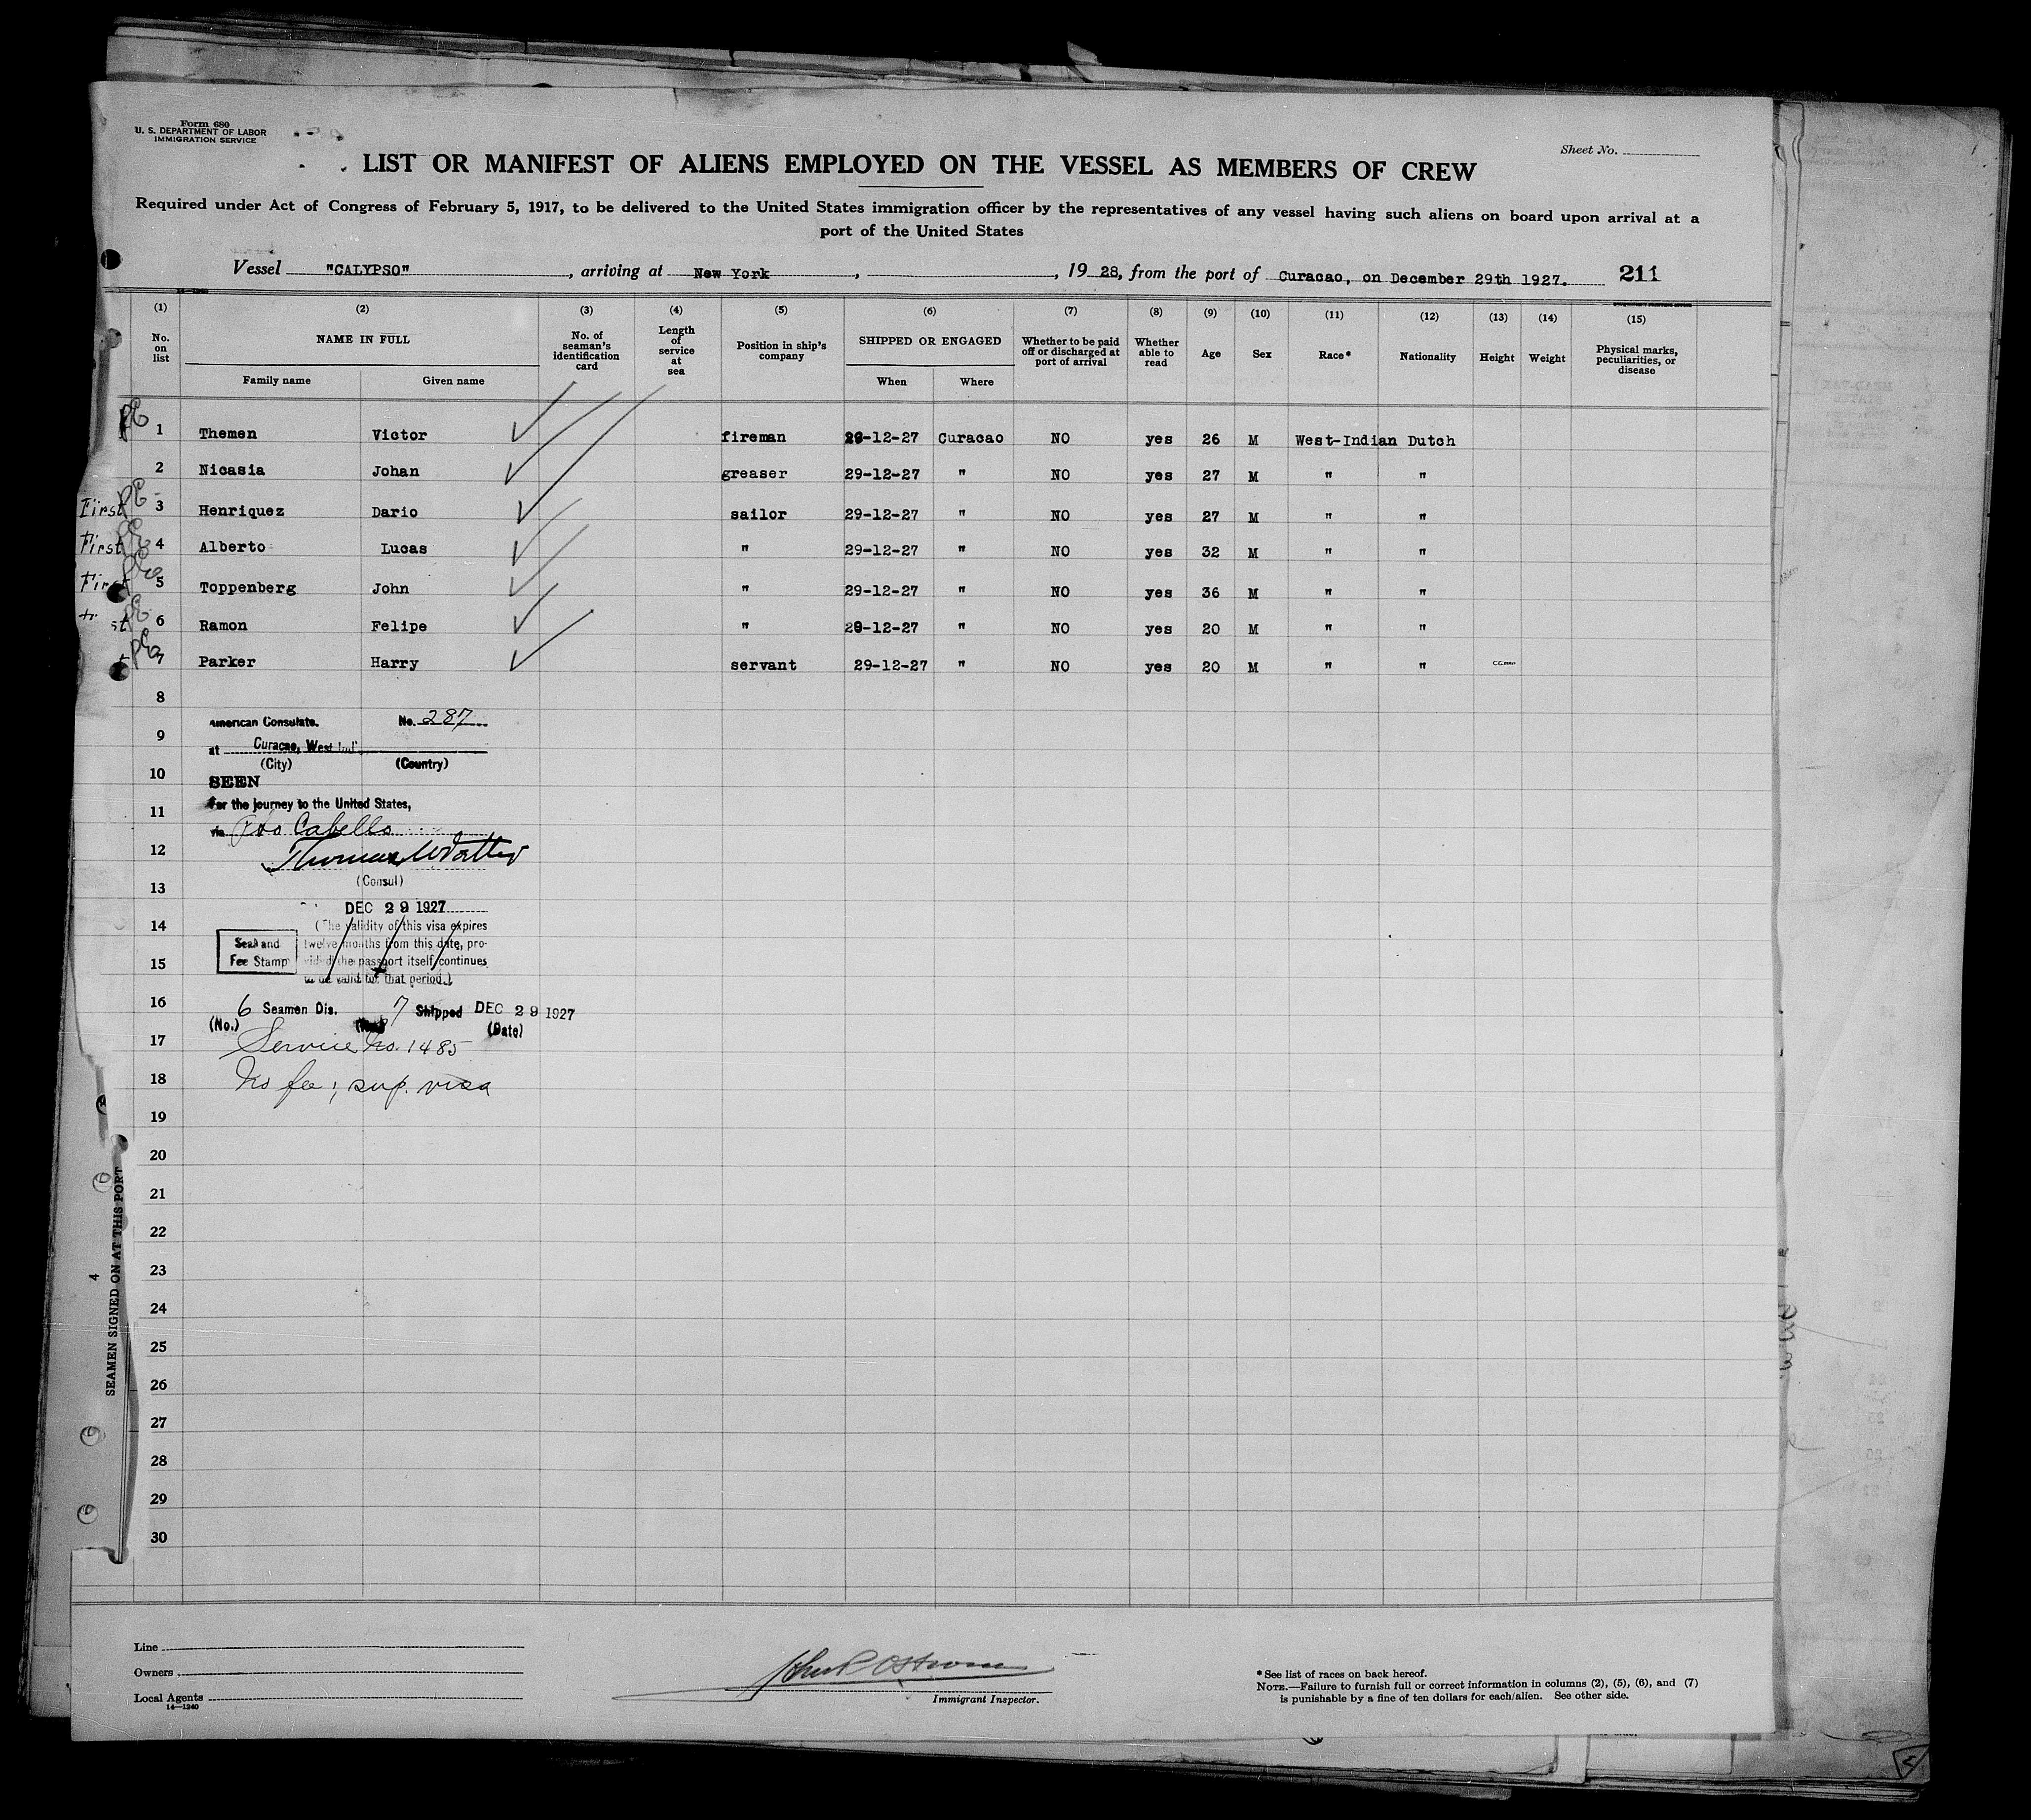 Form 680
U. S. DEPARTMENT OF LABOR
IMMIGRATION SERVICE
Sheet No.
LIST OR MANIFEST OF ALIENS EMPLOYED ON THE VESSEL AS MEMBERS OF CREW
Required under Act of Congress of February 5, 1917, to be delivered to the United States immigration officer by the representatives of any vessel having such aliens on board upon arrival at a
port of the United States
Vessel "CALYPSO", arriving at New York, , 1928, from the port of Curacao, on December 29th 1927. 211
(1) (2) (3) (4) (5) (6) (7) (8) (9) (10) (11) (12) (13) (14) (15)
No. on list NAME IN FULL Family name Given name No. of seaman's identification card Length of service at sea Position in ship's company SHIPPED OR ENGAGED When Where Whether to be paid off or discharged at port of arrival Whether able to read Age Sex Race* Nationality Height Weight Physical marks, peculiarities, or disease
1 Themen Victor fireman 29-12-27 Curacao NO yes 26 M West-Indian Dutch
2 Nicasia Johan greaser 29-12-27 " NO yes 27 M " "
First 3 Henriquez Dario sailor 29-12-27 " NO yes 27 M " "
First 4 Alberto Lucas " 29-12-27 " NO yes 32 M " "
First 5 Toppenberg John " 29-12-27 " NO yes 36 M " "
6 Ramon Felipe " 29-12-27 " NO yes 20 M " "
7 Parker Harry servant 29-12-27 " NO yes 20 M " "
8
American Consulate. No. 287
9
at Curacao, West Ind
(City) (Country)
10
SEEN
For the journey to the United States,
11
via Pto Cabello
12
(Consul)
13
DEC 29 1927
14
(The validity of this visa expires
Seal and twelve months from this date, pro-
Fee Stamp vided the passport itself continues
15
to be valid for that period.)
16
6 Seamen Dis. 7 Shipped DEC 29 1927
(No.) (Date)
17
Service No. 1485
18
No fee; sup. visa
19
20
21
22
23
24
25
26
27
28
29
30
4
SEAMEN SIGNED ON AT THIS PORT
Line
Owners
Local Agents
14—1240
Immigrant Inspector.
* See list of races on back hereof.
NOTE.—Failure to furnish full or correct information in columns (2), (5), (6), and (7)
is punishable by a fine of ten dollars for each alien. See other side.